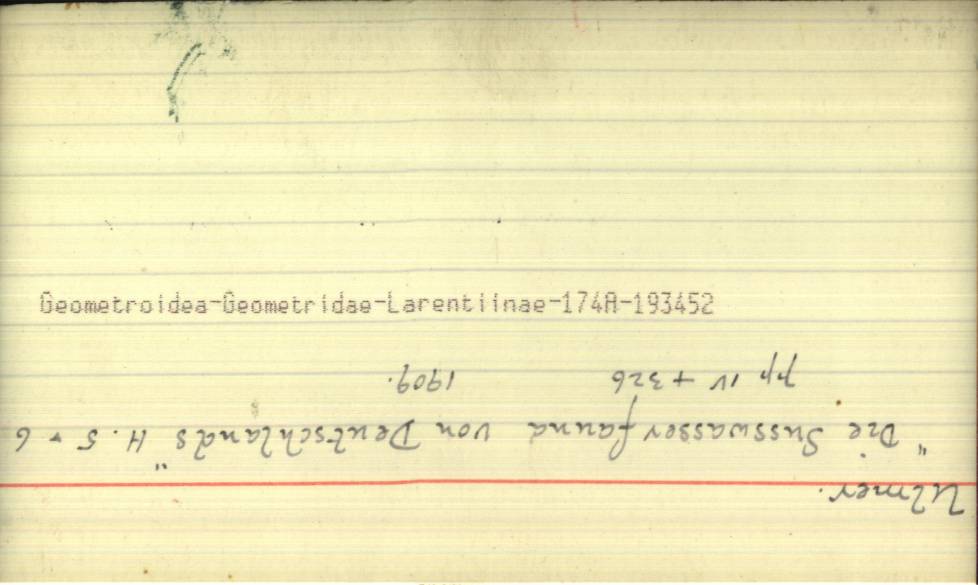 Geometroidea-Geometridae-Larentiinae-174A-193452
Ulmer.
"Die Susswasserfauna von Deutschlands" H. 5 - 6
pp IV + 326 1909.